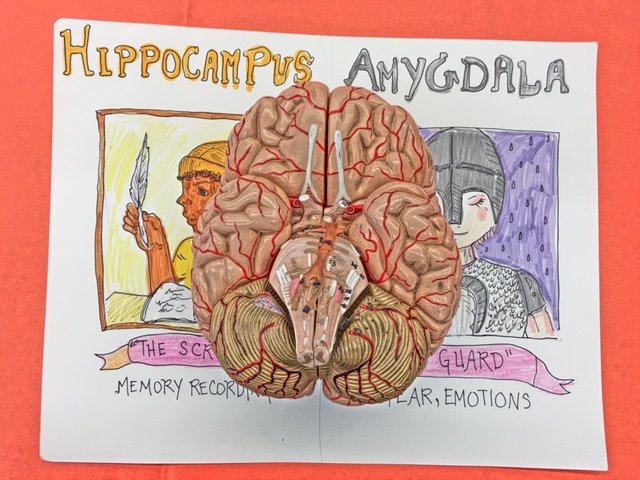 HIPPOCAMPUS
AMYGDALA
"THE SCR
GUARD"
MEMORY RECORDIN
FEAR, EMOTIONS